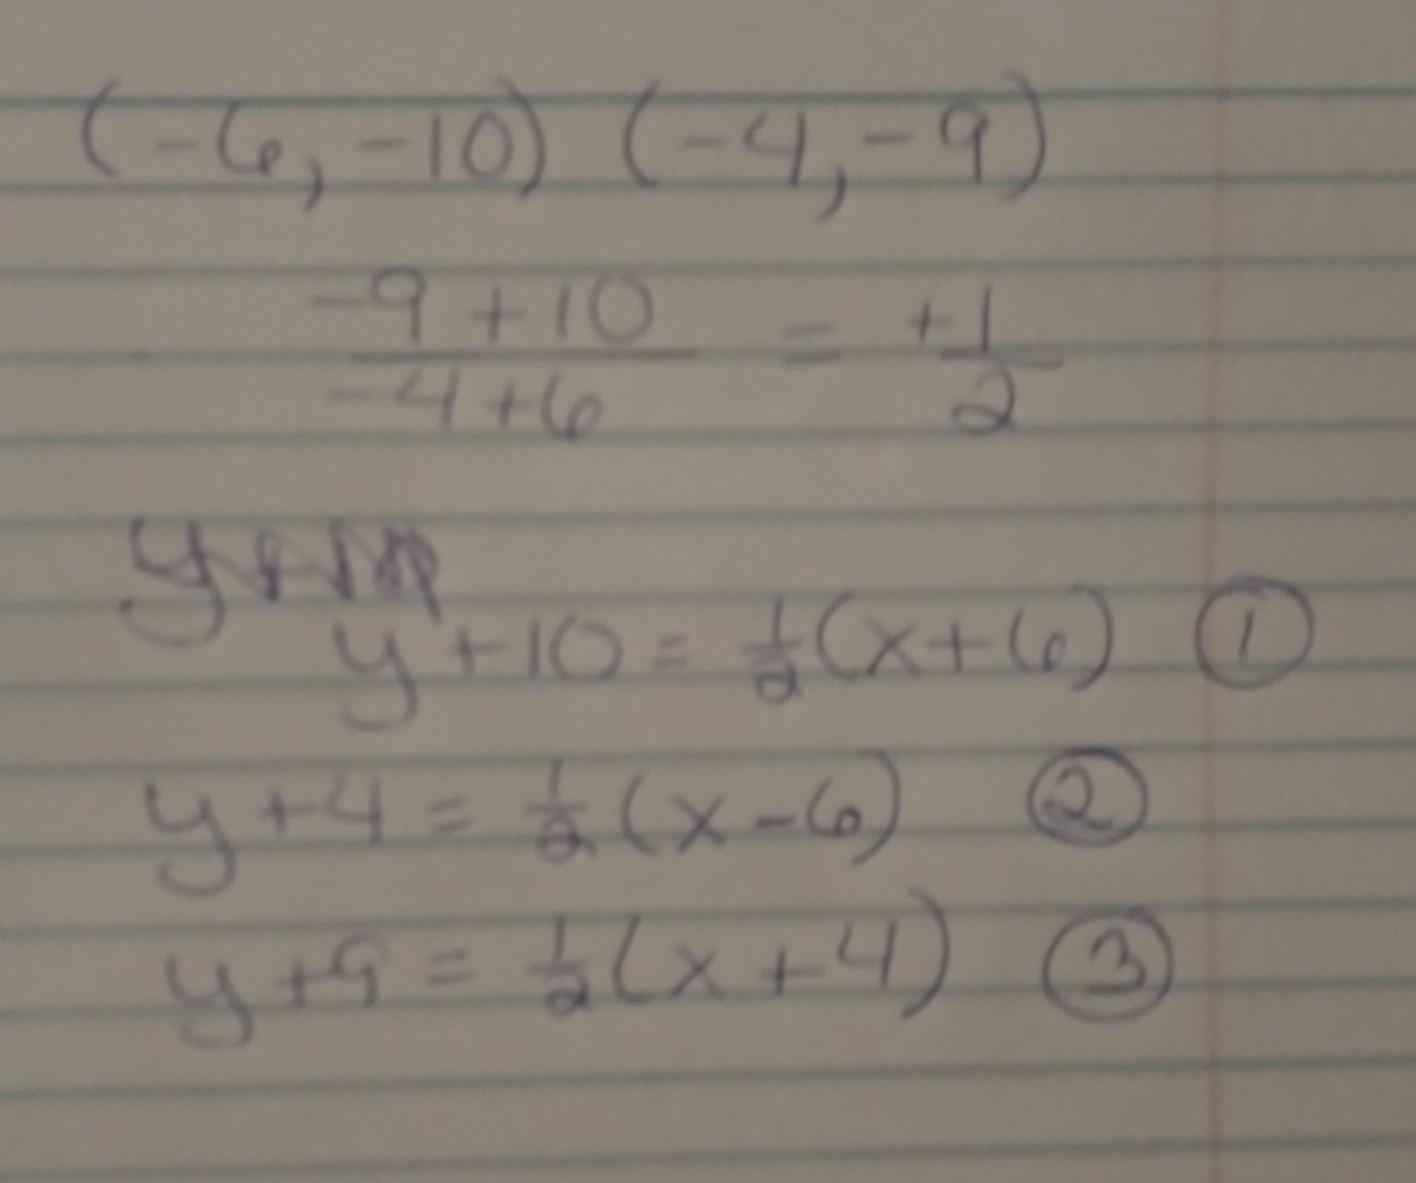 (-6, -10) (-4, -9)
-9 + 10 / -4 + 6 = +1 / 2
y + 10 = 1/2 (x + 6) ①
y + 4 = 1/2 (x - 6) ②
y + 9 = 1/2 (x + 4) ③